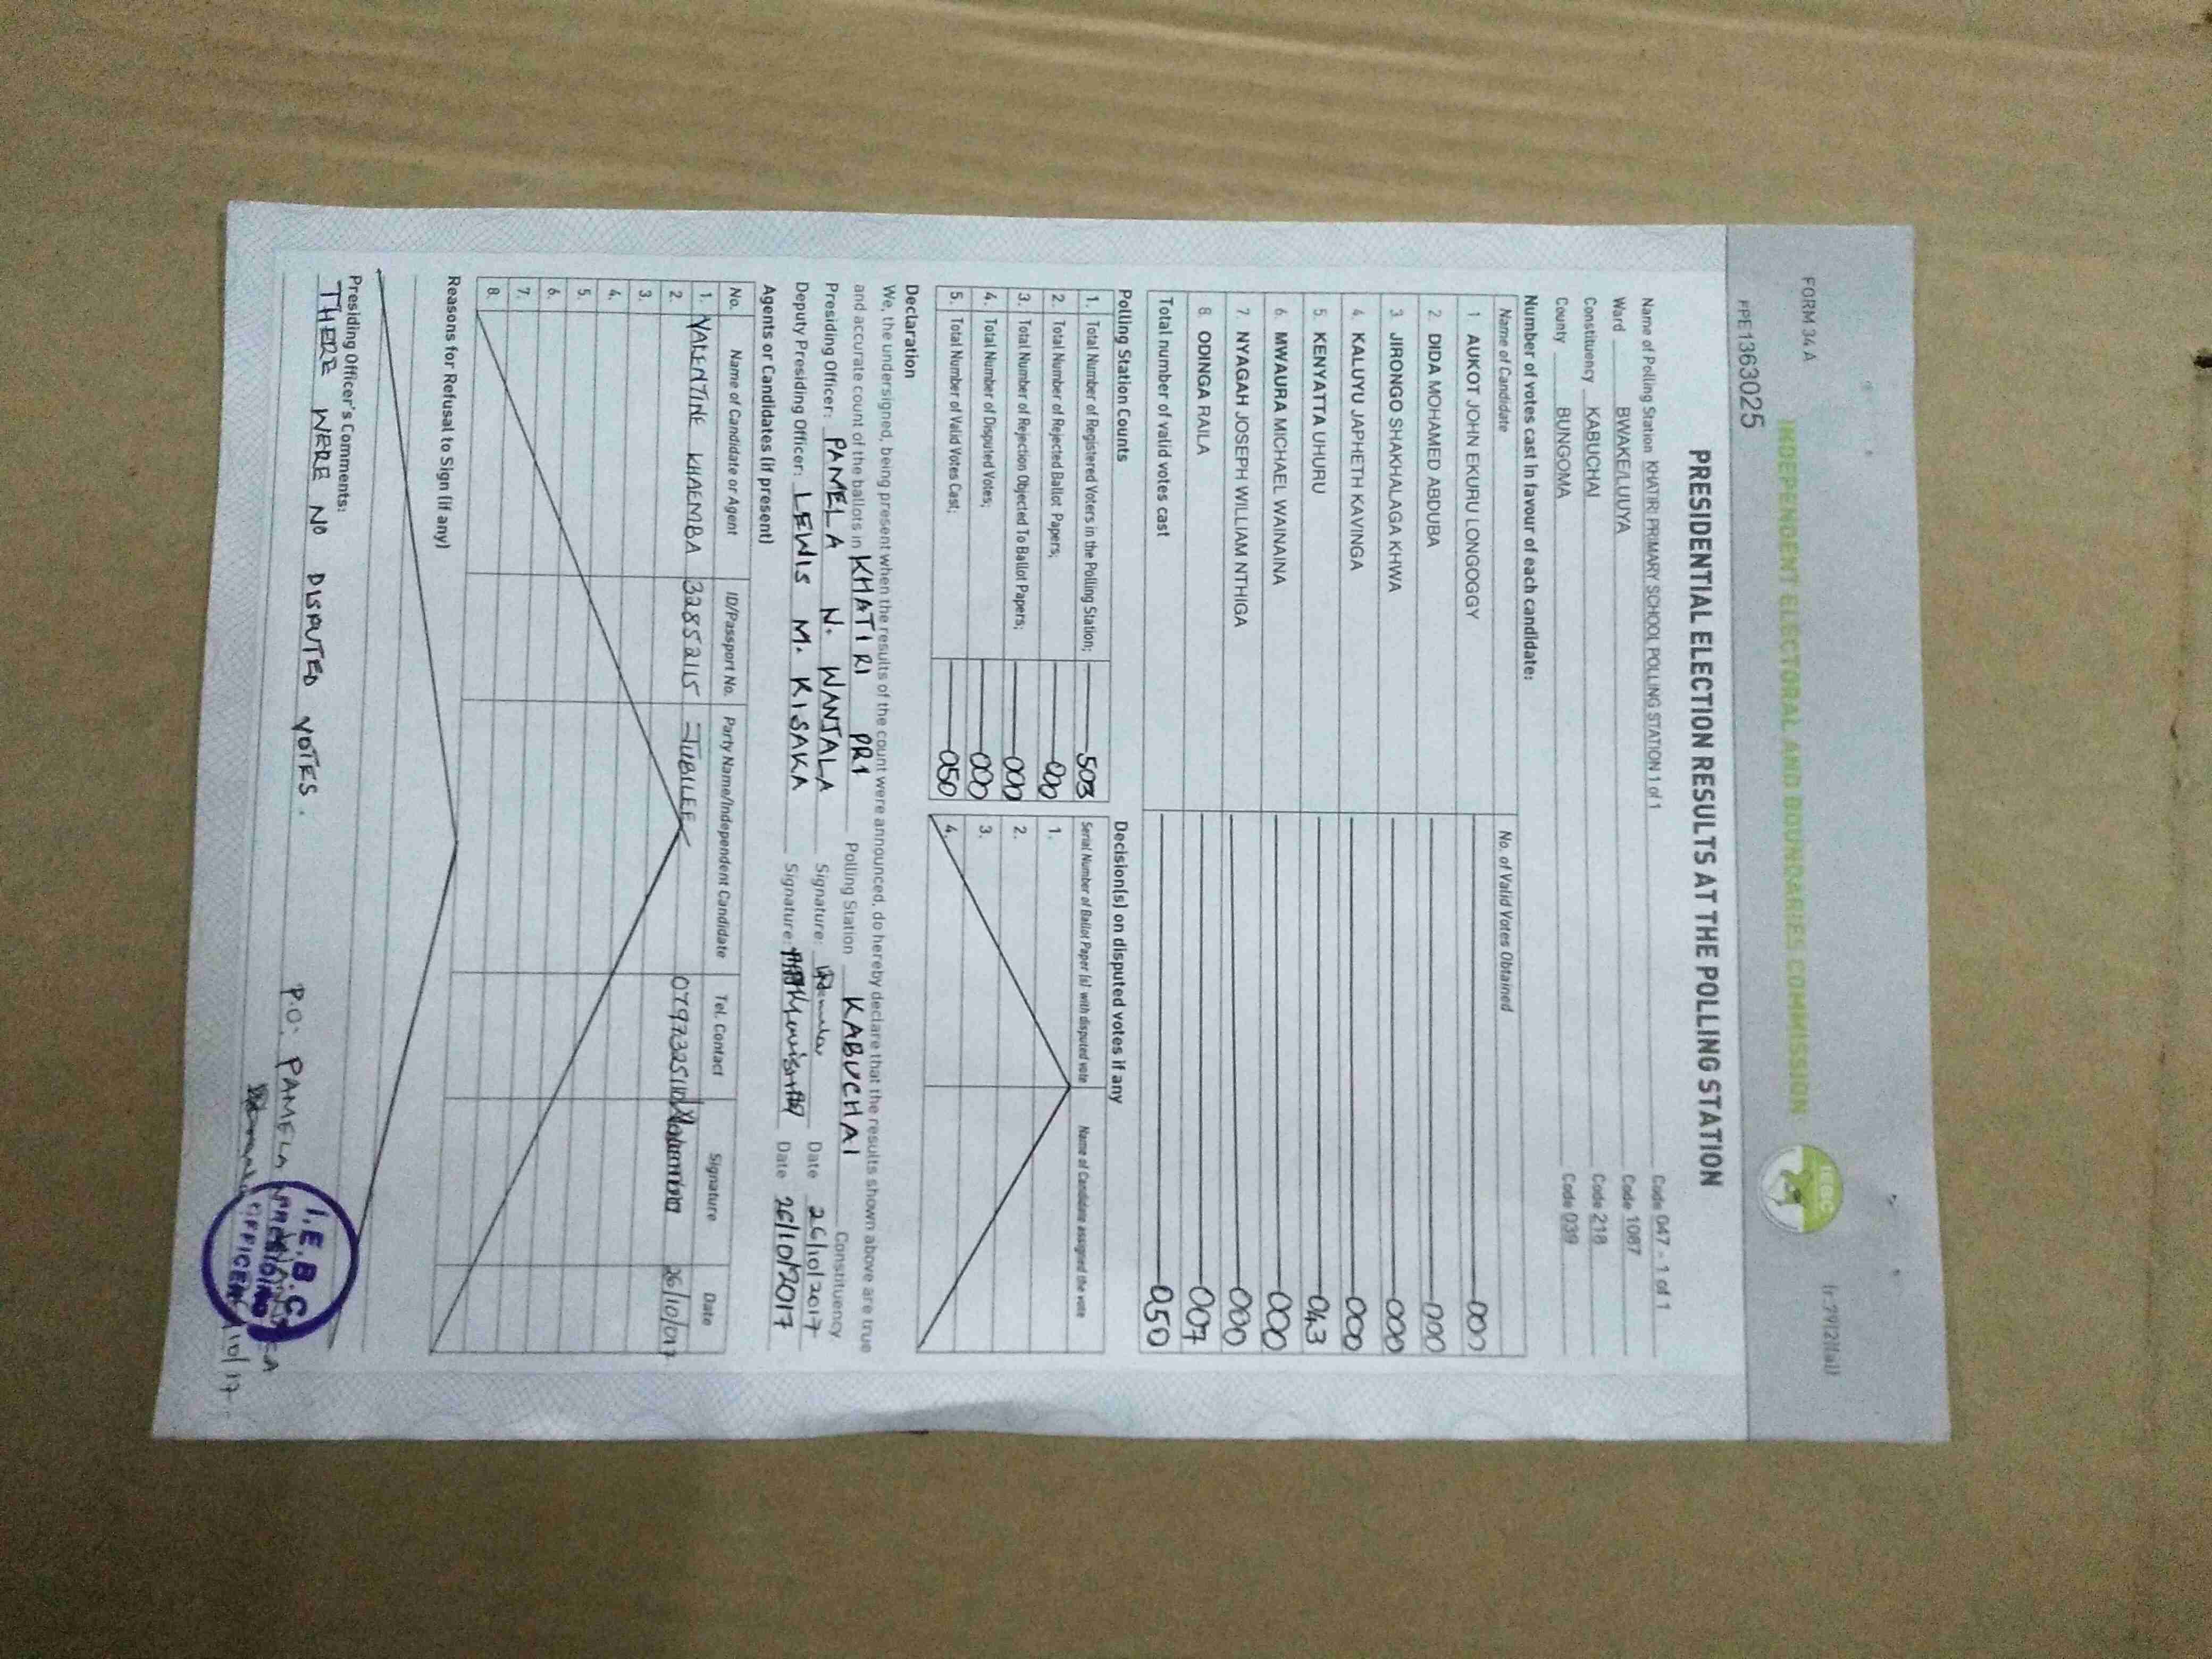 FORM 34 A
(r.79(2)(a))
INDEPENDENT ELECTORAL AND BOUNDARIES COMMISSION
IEBC
PPE1363025
PRESIDENTIAL ELECTION RESULTS AT THE POLLING STATION
Name of Polling Station KHATIRI PRIMARY SCHOOL POLLING STATION 1 of 1 Code 047 - 1 of 1
Ward BWAKE/LUUYA Code 1087
Constituency KABUCHAI Code 218
County BUNGOMA Code 039
Number of votes cast in favour of each candidate:
Name of Candidate No. of Valid Votes Obtained
1 AUKOT JOHN EKURU LONGOGGY 000
2 DIDA MOHAMED ABDUBA 000
3 JIRONGO SHAKHALAGA KHWA 000
4 KALUYU JAPHETH KAVINGA 000
5 KENYATTA UHURU 043
6 MWAURA MICHAEL WAINAINA 000
7 NYAGAH JOSEPH WILLIAM NTHIGA 000
8 ODINGA RAILA 007
Total number of valid votes cast 050
Polling Station Counts
1. Total Number of Registered Voters in the Polling Station; 503
2. Total Number of Rejected Ballot Papers; 000
3. Total Number of Rejection Objected To Ballot Papers; 000
4. Total Number of Disputed Votes; 000
5. Total Number of Valid Votes Cast; 050
Decision(s) on disputed votes if any
Serial Number of Ballot Paper (s) with disputed vote Name of Candidate assigned the vote
1.
2.
3.
4.
Declaration
We, the undersigned, being present when the results of the count were announced, do hereby declare that the results shown above are true
and accurate count of the ballots in KHATIRI PRI Polling Station KABUCHAI Constituency
Presiding Officer: PAMELA N. WANJALA Signature: Date 26/10/2017
Deputy Presiding Officer: LEWIS M. KISAKA Signature: Date 26/10/2017
Agents or Candidates (if present)
No. Name of Candidate or Agent ID/Passport No. Party Name/Independent Candidate Tel. Contact Signature Date
1. VALENTINE KHAEMBA 32852115 JUBILEE
2
3
4.
5.
6.
7.
8.
Reasons for Refusal to Sign (if any)
Presiding Officer's Comments:
THERE WERE NO DISPUTED VOTES.
P.O: PAMELA
I.E.B.C
PRESIDING
OFFICER